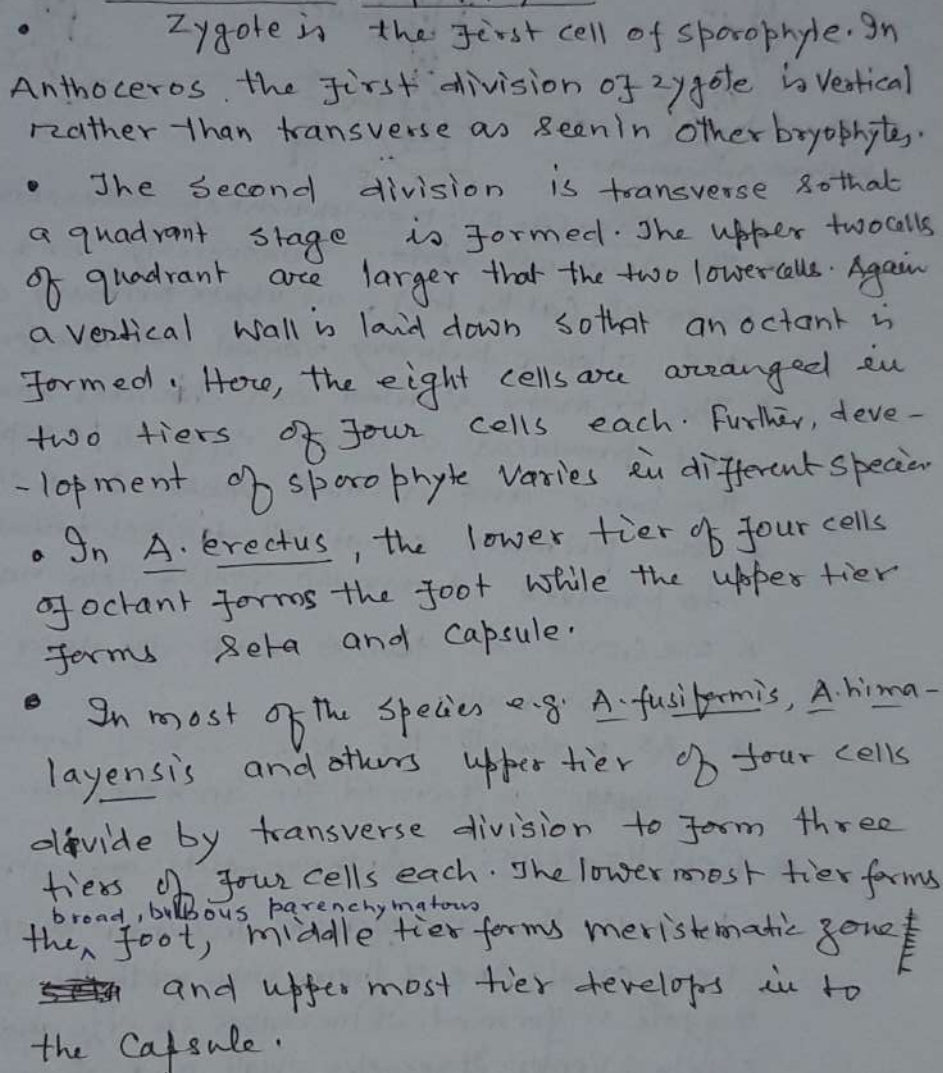 • Zygote is the first cell of sporophyte. In
Anthoceros the first division of zygote is vertical
rather than transverse as seen in other bryophytes.
• The second division is transverse so that
a quadrant stage is formed. The upper two cells
of quadrant are larger that the two lower cells. Again
a vertical wall is laid down so that an octant is
formed. Here, the eight cells are arranged in
two tiers of four cells each. Further, deve-
-lopment of sporophyte varies in different species
• In A. erectus, the lower tier of four cells
of octant forms the foot while the upper tier
forms seta and capsule.
• In most of the species e.g. A. fusiformis, A. hima-
layensis and others upper tier of four cells
divide by transverse division to form three
tiers of four cells each. The lower most tier forms
broad, bulbous parenchymatous
the ^ foot, middle tier forms meristematic zone
and upper most tier develops in to
the capsule.